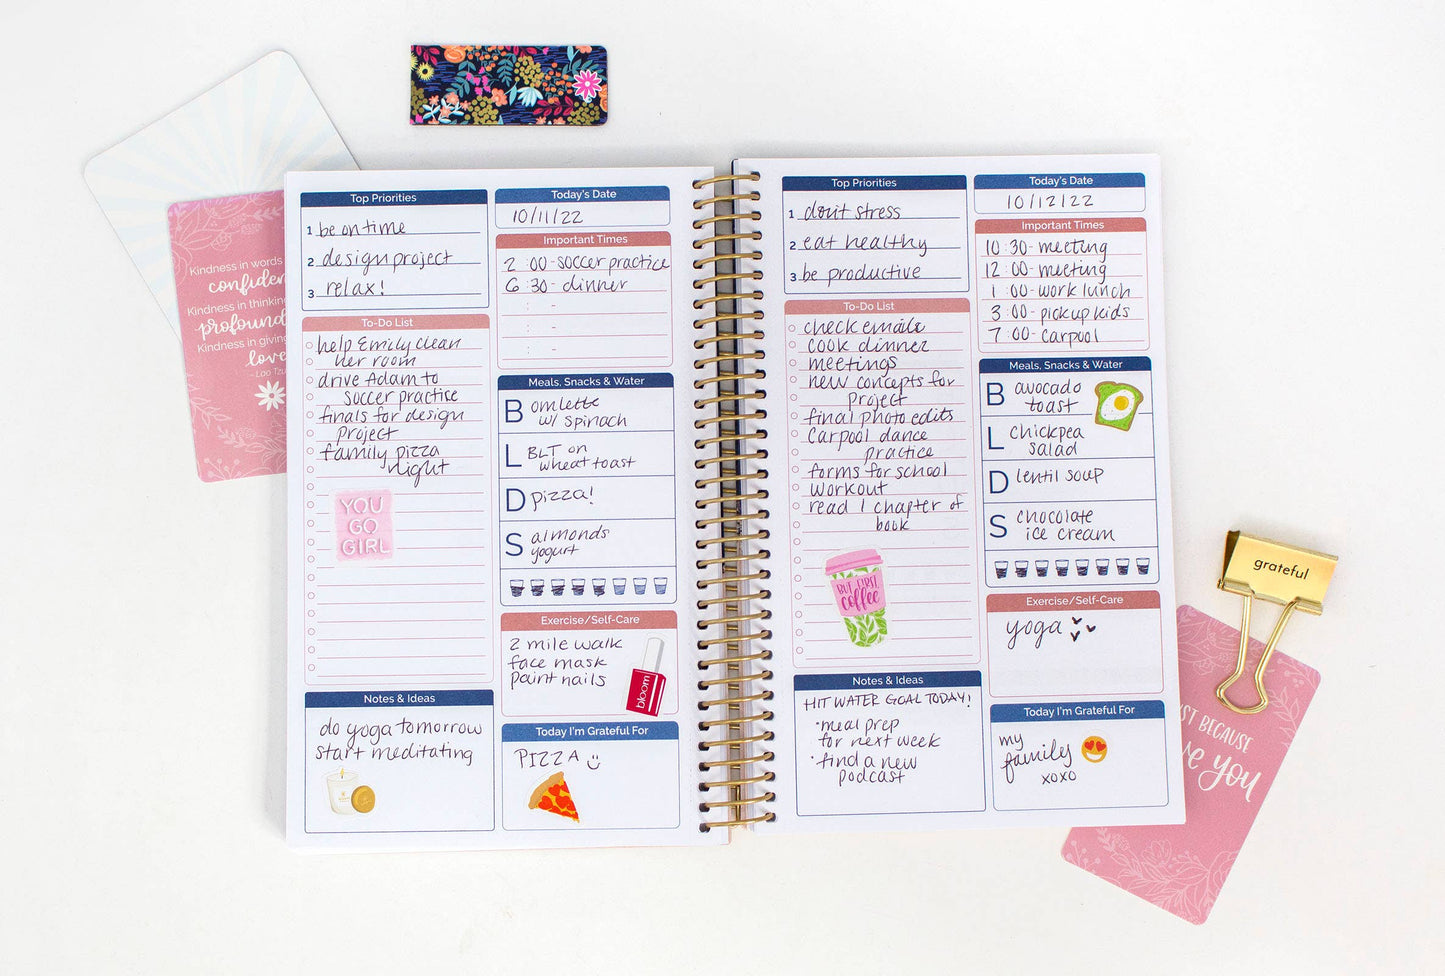 Kindness in words
confiden
Kindness in thinking
profound
Kindness in giving
love
- Lao Tzu
Top Priorities
1 be on time
2 design project
3 relax!
To-Do List
help Emily clean
her room
drive Adam to
soccer practice
finals for design
project
family pizza
night
YOU
GO
GIRL
Notes & Ideas
do yoga tomorrow
start meditating
Today's Date
10/11/22
Important Times
2 :00 - soccer practice
6 :30 - dinner
: -
: -
: -
Meals, Snacks & Water
B omlette
w/ spinach
L BLT on
wheat toast
D pizza!
S almonds
yogurt
Exercise/Self-Care
2 mile walk
face mask
paint nails
bloom
Today I'm Grateful For
PIZZA
Top Priorities
1 don't stress
2 eat healthy
3 be productive
To-Do List
check emails
cook dinner
meetings
new concepts for
project
final photo edits
carpool dance
practice
forms for school
workout
read 1 chapter of
book
BUT FIRST
coffee
Notes & Ideas
HIT WATER GOAL TODAY!
• meal prep
for next week
• find a new
podcast
Today's Date
10/12/22
Important Times
10 :30 - meeting
12 :00 - meeting
1 :00 - work lunch
3 :00 - pickup kids
7 :00 - carpool
Meals, Snacks & Water
B avocado
toast
L chickpea
salad
D lentil soup
S chocolate
ice cream
Exercise/Self-Care
yoga
Today I'm Grateful For
my
family
xoxo
grateful
ST BECAUSE
ve you